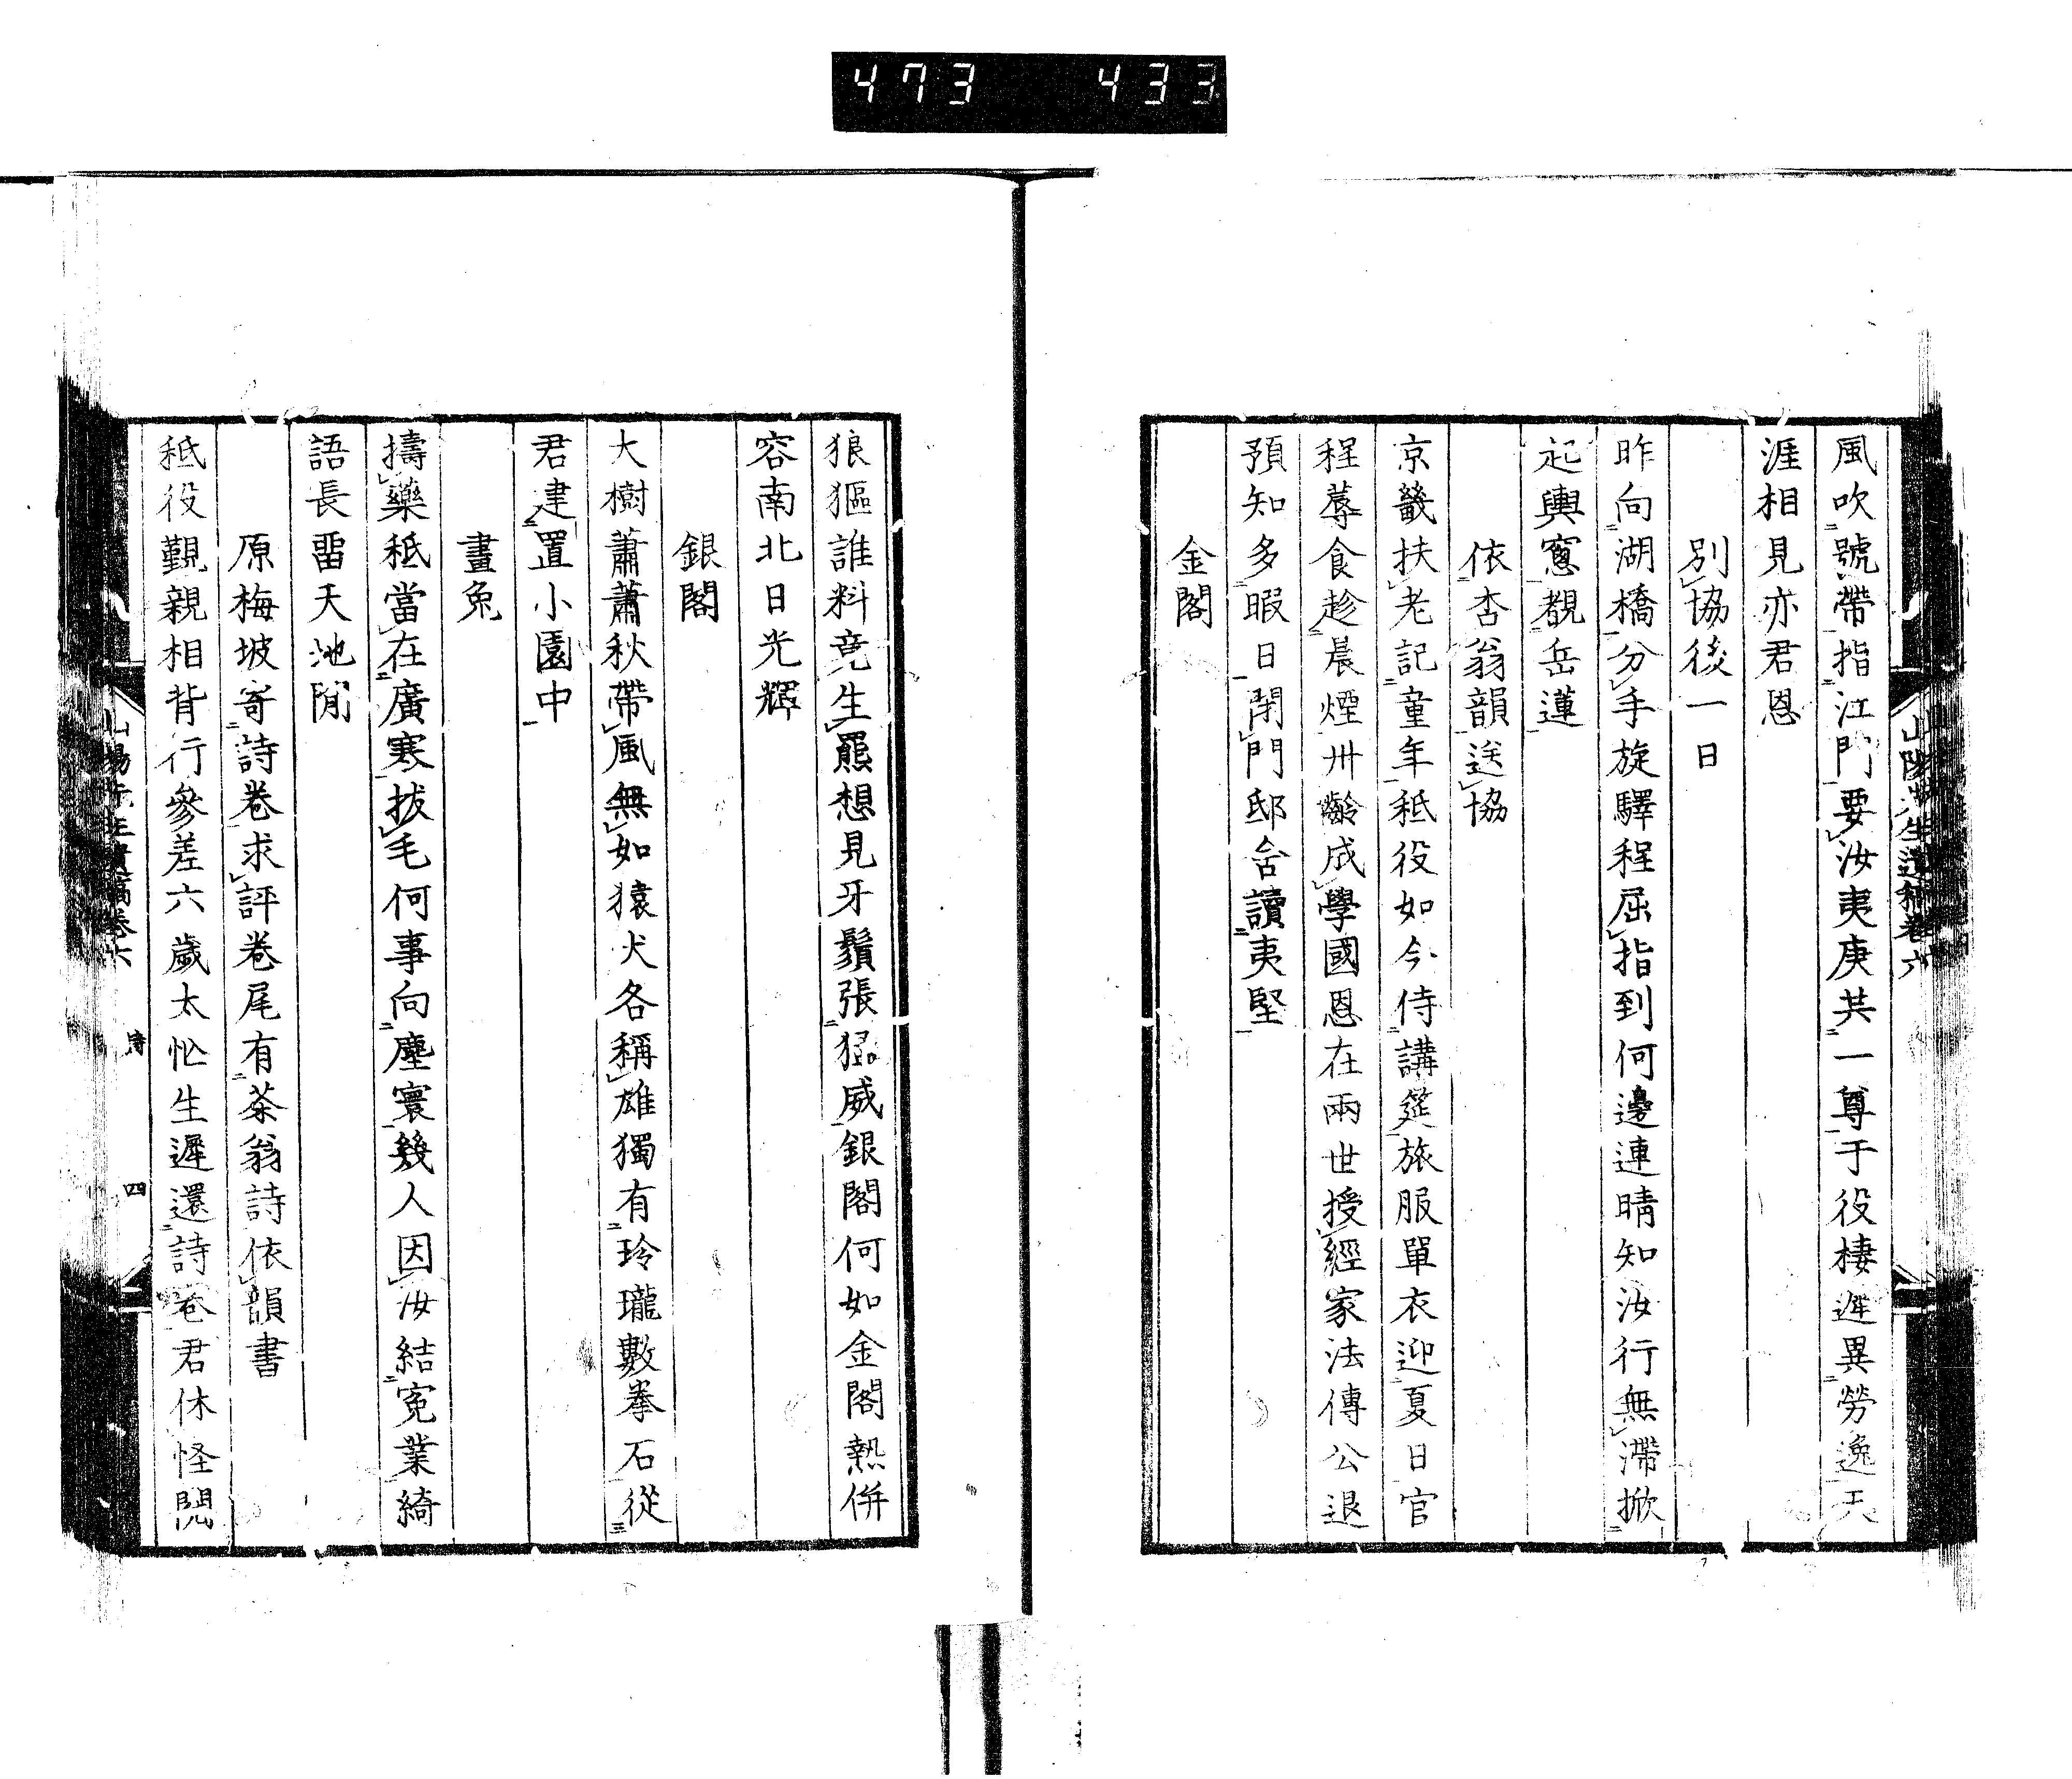 473 433
風吹號帶指江門要汝夷庚共一尊于役棲遲異勞逸天
涯相見亦君恩
別協後一日
昨向湖橋分手旋驛程屈指到何邊連晴知汝行無滯掀
起輿窻覩岳蓮
依杏翁韻送協
京畿扶老記童年秪役如今侍講筵旅服單衣迎夏日官
程蓐食趁晨煙丱齡成學國恩在兩世授經家法傳公退
預知多暇日閉門邸舍讀夷堅
金閣
山陽先生遺稿卷六
狼貙誰料竟生羆想見牙鬚張猛威銀閣何如金閣熱併
容南北日光輝
銀閣
大樹蕭蕭秋帶風無如猿犬各稱雄獨有玲瓏數拳石從
君建置小園中
畫兔
擣藥秪當在廣寒拔毛何事向塵寰幾人因汝結寃業綺
語長畱天地閒
原梅坡寄詩卷求評卷尾有茶翁詩依韻書
秪役覲親相背行參差六歲太忙生遲還詩卷君休怪閱
山陽先生遺稿卷六
詩
四